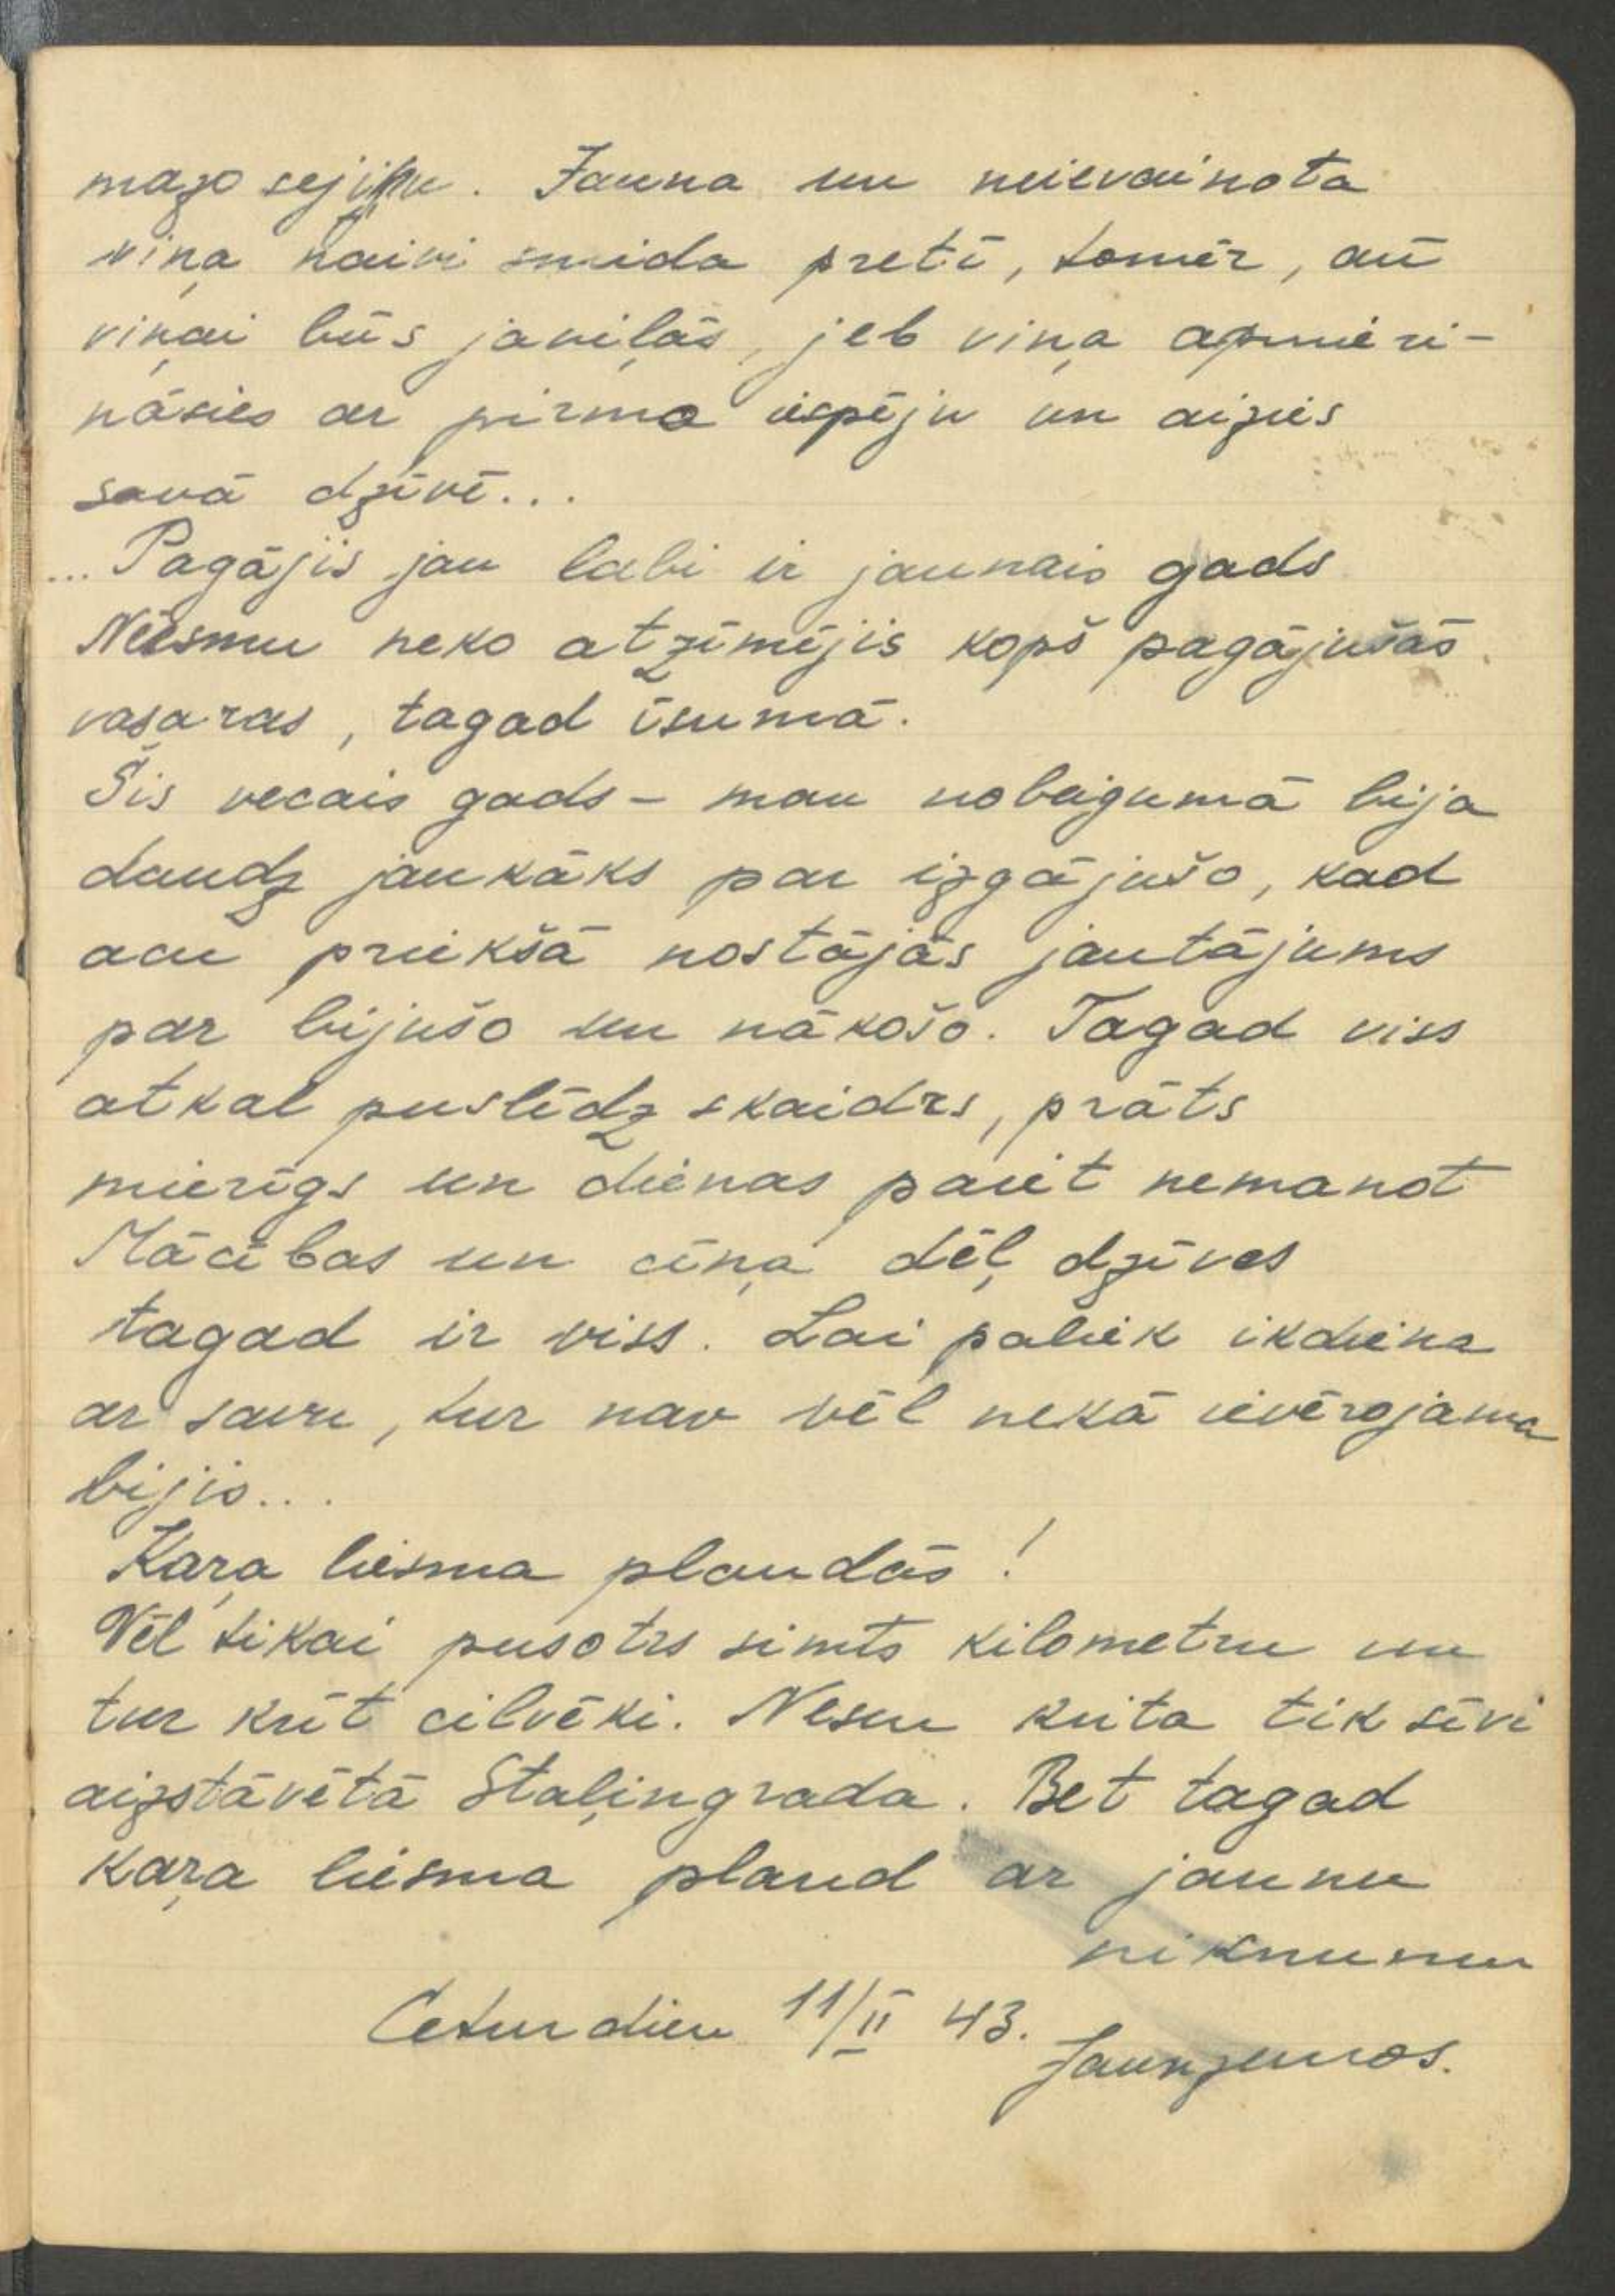 mazo sejiņu. Jauna un neievainota
viņa naivi smaida pretī, tomēr, arī
viņai būs jāviļās, jeb viņa apmieri-
nāsies ar pirmo iespēju un aizies
savā dzīvē...
... Pagājis jau labi ir jaunais gads
Neesmu neko atzīmējis kopš pagājušās
vasaras, tagad īsumā.
Šis vecais gads - man nobeigumā bija
daudz jaukāks par izgājušo, kad
acu priekšā nostājās jautājums
par bijušo un nākošo. Tagad viss
atkal puslīdz skaidrs, prāts
mierīgs un dienas paiet nemanot
Mācības un cīņa dēļ dzīves
tagad ir viss. Lai paliek ikdiena
ar savu, tur nav vēl nekā ievērojama
bijis...
Kaŗa liesma plandās!
Vēl tikai pusotrs simts kilometru un
tur krīt cilvēki. Nesen krita tik sīvi
aizstāvētā Staļingrada. Bet tagad
kaŗa liesma pland ar jaunu
niknumu
Ceturdien 11/II 43.
Jaunzemos.